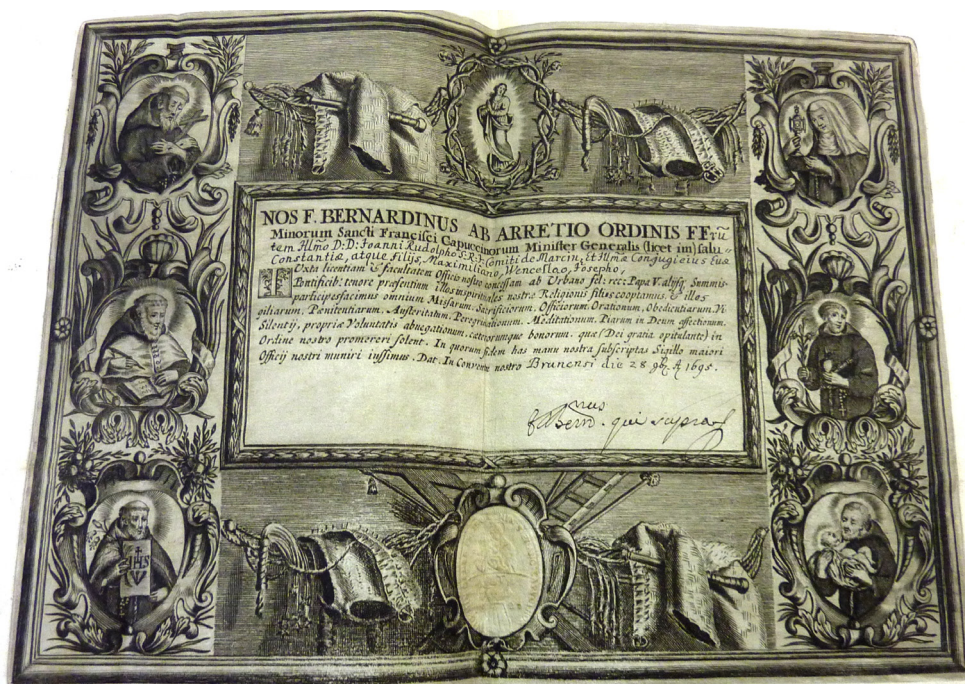 NOS F. BERNARDINUS AB ARRETIO ORDINIS FFrũ
Minorum Sancti Francisci Capuccinorum Minister Generalis (licet im) salu-
tem Illm̃o D: D: Joanni Rudolpho S: R: I: Comiti de Marcin, et Illmæ Conjugi eius Evæ
Constantiæ, atque Filijs, Maximiliano, Wenceslao, Josepho,
IUxta licentiam & facultatem Officio nostro concessam ab Urbano fel: rec: Papa V. alijsq, Summis
Pontificib: tenore præsentium Illos in spirituales nostræ Religionis filios cooptamus, & illos
participes facimus omnium Missarum, Sacrificiorum, Officiorum, Orationum, Obedientiarum, Vi
giliarum, Pœnitentiarum, Austeritatum, Peregrinationum, Meditationum, Piarum in Deum affectionum.
Silentij, propriæ Voluntatis abnegationum, cæterorumque bonorum, quæ (Dei gratia opitulante) in
Ordine nostro promereri solent. In quorum fidem has manu nostra subscriptas Sigillo maiori
Officij nostri muniri iussimus. Dat. In Conventu nostro Brunensi die 28 9b. A 1695.
f Bern.nus qui supra
IHS
V